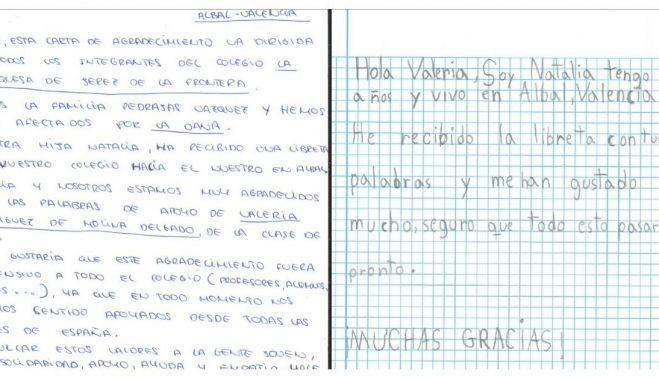 ALBAL-VALENCIA
, ESTA CARTA DE AGRADECIMIENTO VA DIRIGIDA
ODOS LOS INTEGRANTES DEL COLEGIO LA
DE JEREZ DE LA FRONTERA.
S LA FAMILIA PEDRAJAS VAZQUEZ Y HEMOS
AFECTADOS POR LA DANA.
TRA HIJA NATALIA, HA RECIBIDO UNA LIBRETA
VUESTRO COLEGIO HACIA EL NUESTRO EN ALBAL
LA Y NOSOTROS ESTAMOS MUY AGRADECIDOS
LAS PALABRAS DE APOYO DE VALERIA
DE MOLINA DELGADO, DE LA CLASE DE
GUSTARIA QUE ESTE AGRADECIMIENTO FUERA
ENSIVO A TODO EL COLEGIO (PROFESORES, ALUMNOS,
S...), YA QUE EN TODO MOMENTO NOS
OS SENTIDO APOYADOS DESDE TODAS LAS
ES DE ESPAÑA.
ULCAR ESTOS VALORES A LA GENTE JOVEN,
SOLIDARIDAD, APOYO, AYUDA Y EMPATIA HACE
Hola Valeria, Soy Natalia tengo
años y vivo en Albal, Valencia
He recibido la libreta con tu
palabras y me han gustado
mucho, seguro que todo esto pasar
pronto.
MUCHAS GRACIAS!